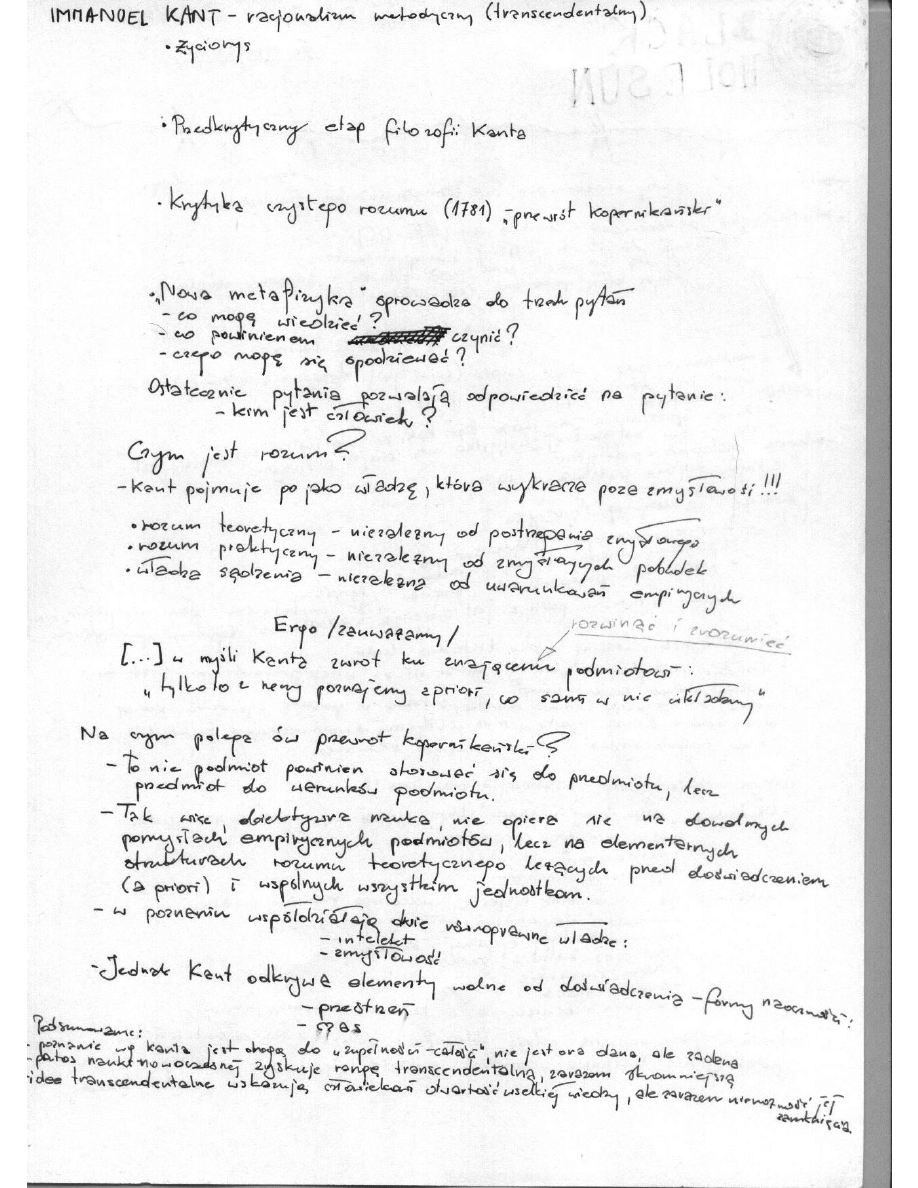 IMMANUEL KANT - racjonalizm metodyczny (transcendentalny)
• Życiorys
BLACK
HOLE SUN
• Przedkrytyczny etap filozofii Kanta
• Krytyka czystego rozumu (1781) „przewrót kopernikański"
• „Nowa metafizyka" sprowadza do trzech pytań
- co mogę wiedzieć?
- co powinienem czynić?
- czego mogę się spodziewać?
Ostatecznie pytania pozwalają odpowiedzieć na pytanie:
- kim jest człowiek?
Czym jest rozum?
- Kant pojmuje go jako władzę, która wykracza poza zmysłowość!!!
• rozum teoretyczny - niezależny od postrzegania zmysłowego
• rozum praktyczny - niezależny od zmysłowych pobudek
• władza sądzenia - niezależna od uwarunkowań empirycznych
Ergo /zauważamy/
rozwinąć i zrozumieć
[...] w myśli Kanta zwrot ku znającemu podmiotowi:
„tylko to z rzeczy poznajemy a priori, co sami w nie wkładamy"
Na czym polega ów przewrót kopernikański?
- To nie podmiot powinien stosować się do przedmiotu, lecz
przedmiot do warunków podmiotu.
- Tak więc, obiektywna nauka, nie opiera się na dowolnych
pomysłach empirycznych podmiotów, lecz na elementarnych
strukturach rozumu teoretycznego leżących przed doświadczeniem
(a priori) i wspólnych wszystkim jednostkom.
- w poznaniu współdziałają dwie równoprawne władze:
- intelekt
- zmysłowość
- Jednak Kant odkrywa elementy wolne od doświadczenia - formy naoczności:
- przestrzeń
- czas
Podsumowanie:
- poznanie wg kanta jest drogą do „zupełności-całości", nie jest ona dana, ale zadana
- patos nauki nowoczesnej zyskuje rangę transcendentalną, zarazem skromniejszą
- idee transcendentalne wskazują człowiekowi otwartość wszelkiej wiedzy, ale zarazem niemożność jej
zamknięcia.